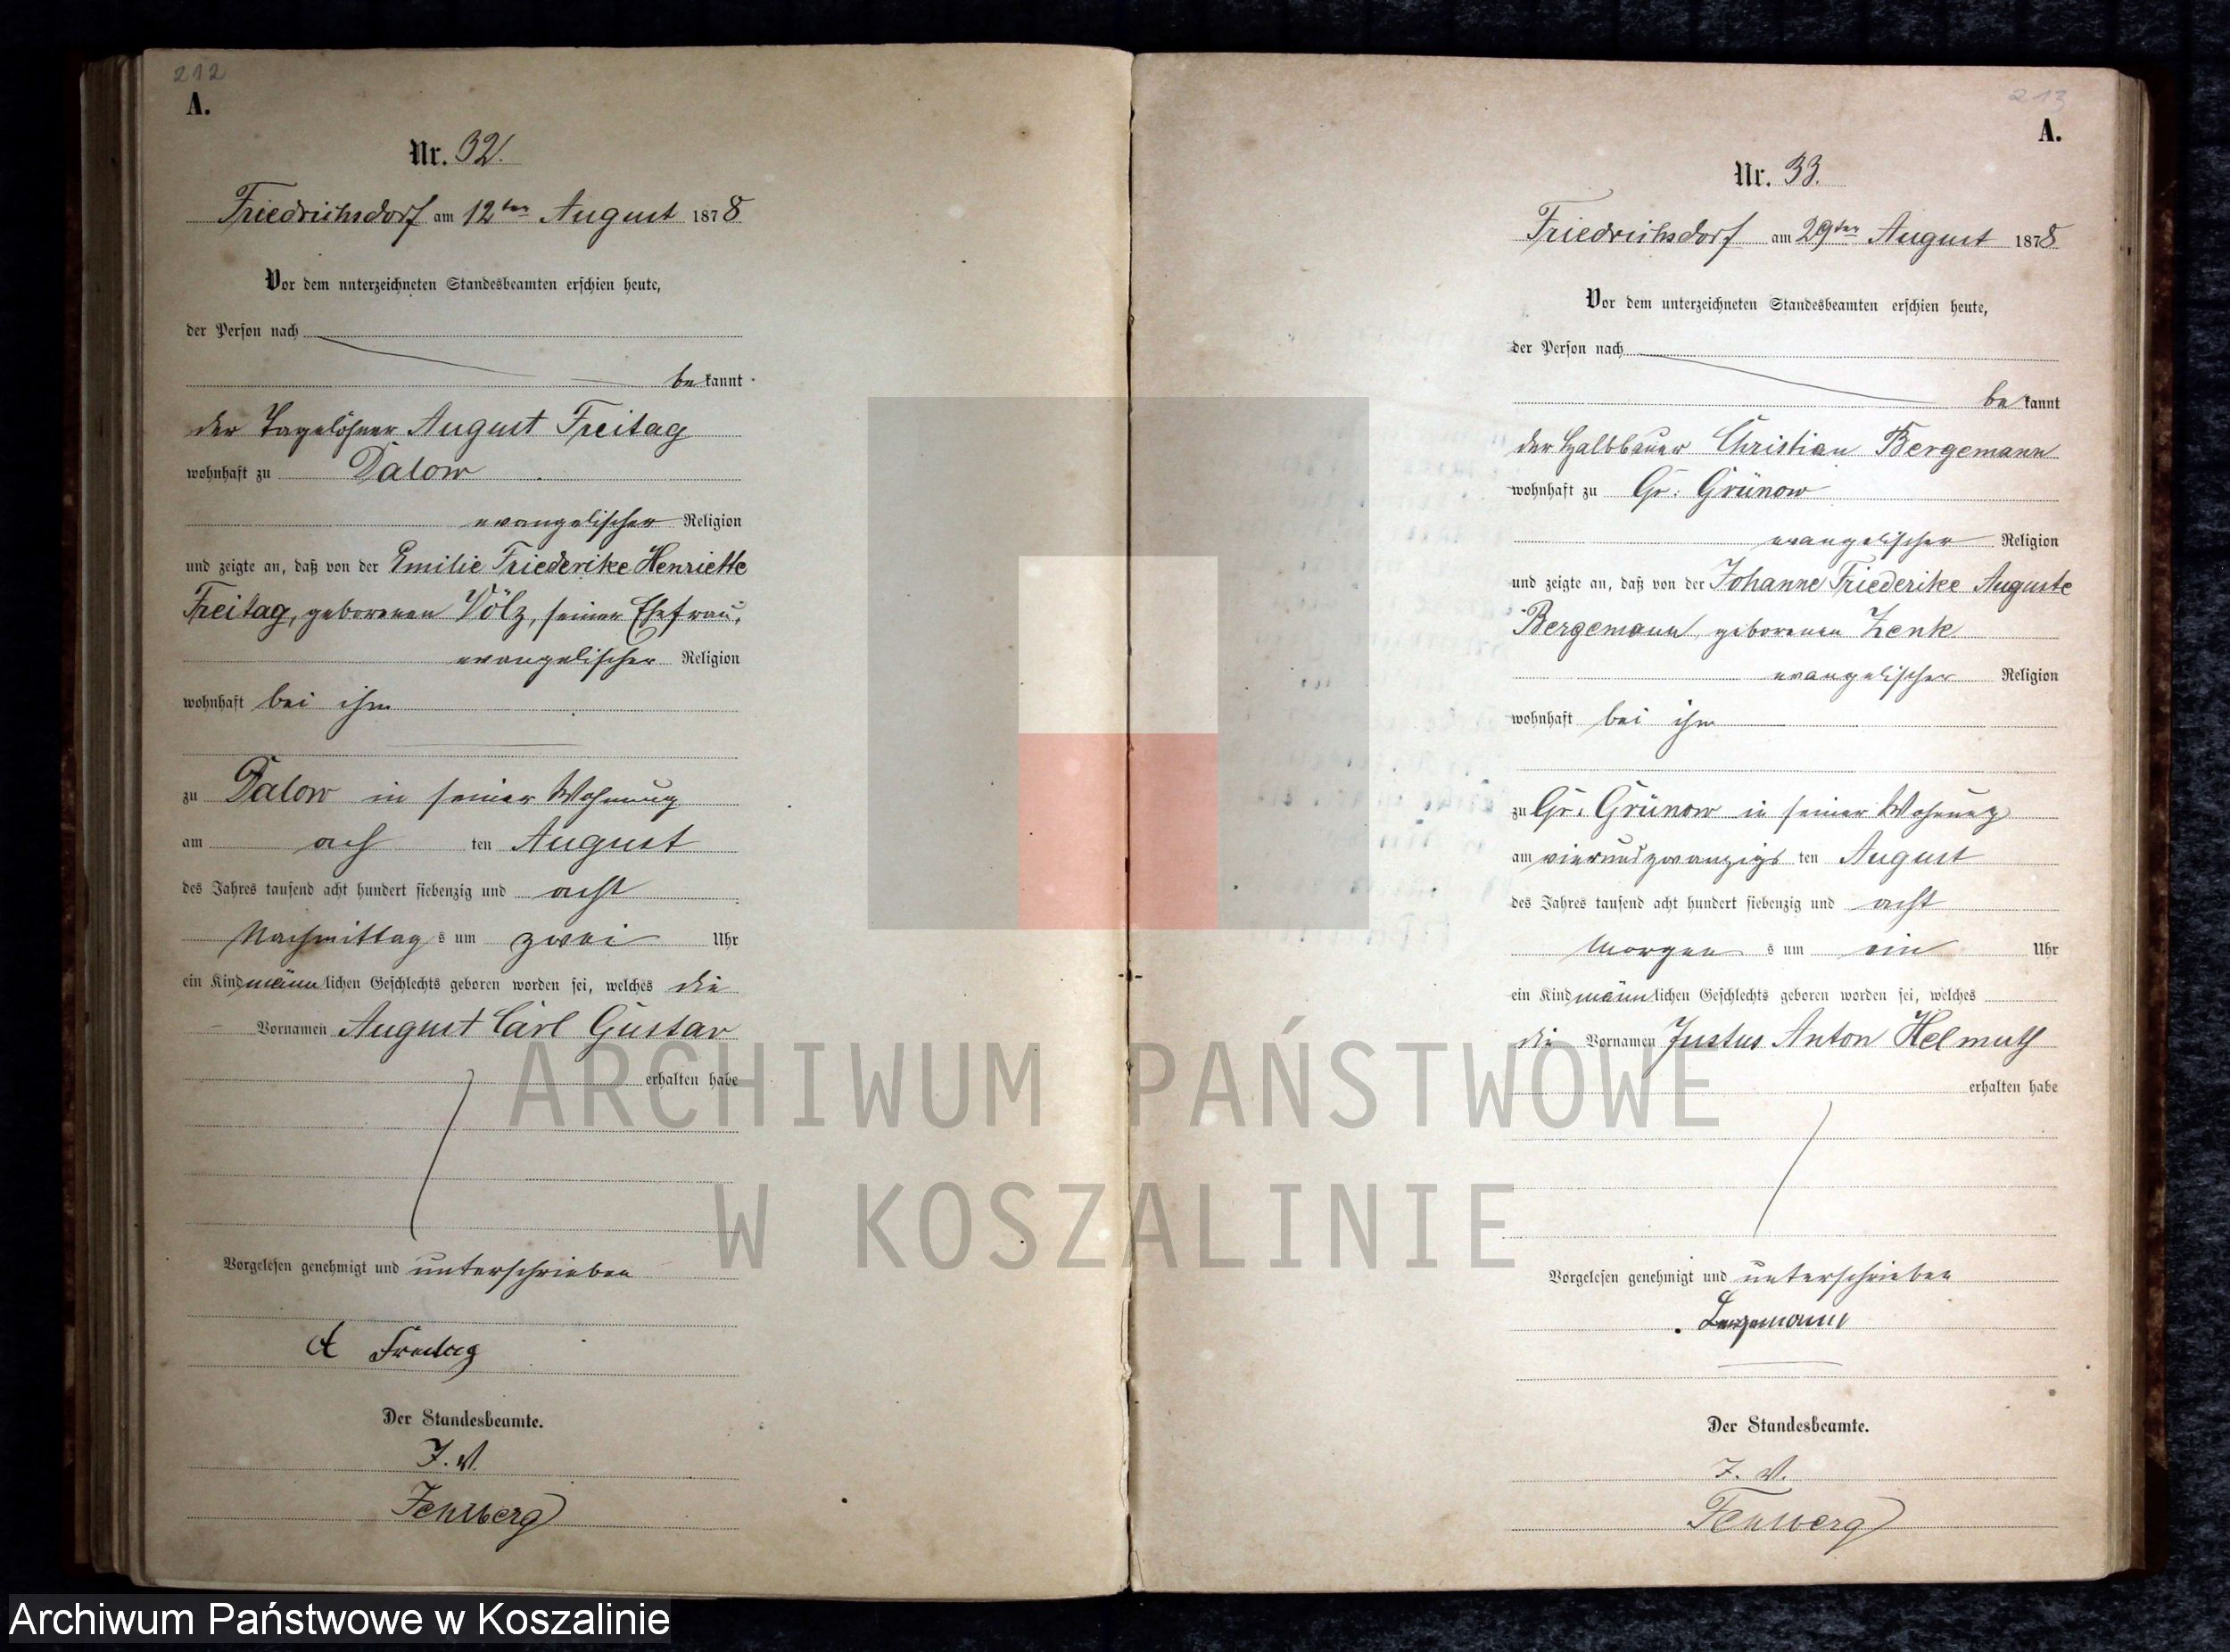 212
A.
Nr. 32.
Friedrichsdorf am 12ten August 1878
Vor dem unterzeichneten Standesbeamten erschien heute,
der Person nach
bekannt
der Tagelöhner August Freitag
wohnhaft zu Dalow
evangelischer Religion
und zeigte an, daß von der Emilie Friederike Henriette
Freitag, geborenen Völz, seiner Ehefrau,
evangelischer Religion
wohnhaft bei ihm
zu Dalow in seiner Wohnung
am ach ten August
des Jahres tausend acht hundert siebenzig und acht
Nachmittag s um zwei Uhr
ein Kind männlichen Geschlechts geboren worden sei, welches die
Vornamen August Carl Gustav
erhalten habe
Vorgelesen genehmigt und unterschrieben
A Freitag
Der Standesbeamte.
J. V.
213
A.
Nr. 33.
Friedrichsdorf am 29ten August 1878
Vor dem unterzeichneten Standesbeamten erschien heute,
der Person nach
bekannt
der Halbbauer Christian Bergemann
wohnhaft zu Gr: Grünow
evangelischer Religion
und zeigte an, daß von der Johanne Friederike Auguste
Bergemann, geborenen Zenk
evangelischer Religion
wohnhaft bei ihm
zu Gr: Grünow in seiner Wohnung
am vierundzwanzigs ten August
des Jahres tausend acht hundert siebenzig und acht
Morgen s um ein Uhr
ein Kind männlichen Geschlechts geboren worden sei, welches
die Vornamen Justus Anton Helmuth
erhalten habe
Vorgelesen genehmigt und unterschrieben
Bergemann
Der Standesbeamte.
J. V.
ARCHIWUM PAŃSTWOWE
W KOSZALINIE
Archiwum Państwowe w Koszalinie